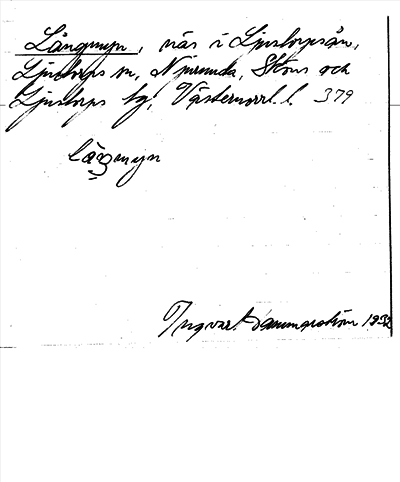 Långmyn, näs i Ljustorpsån,
Ljustorps sn, Njurunda, Sköns och
Ljustorps tg, Västernorrl. l. 379
långmyn
Ingvar Hammarström 1932